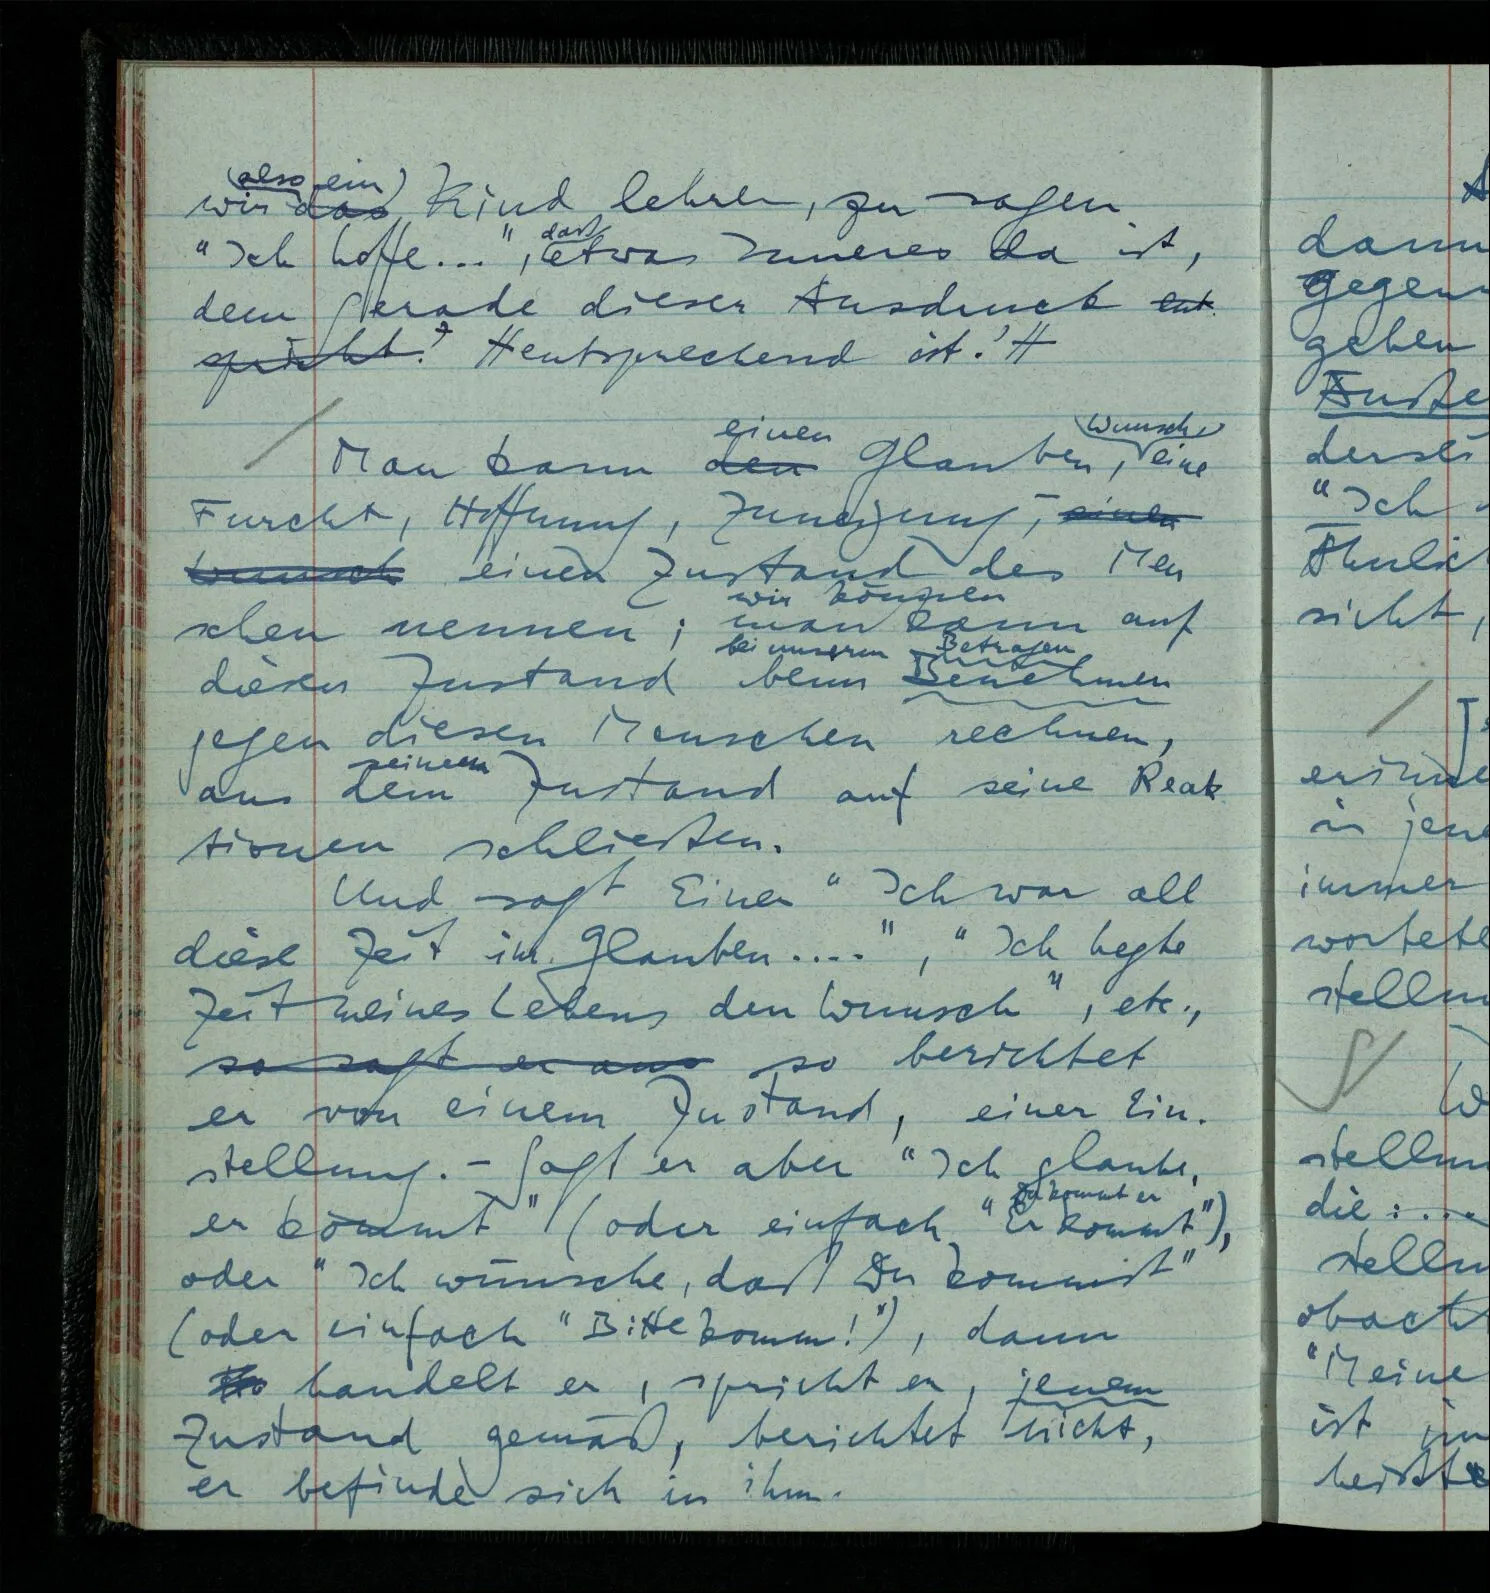 (also ein)
wir das Kind lehren, zu sagen
"Ich hoffe...", daß etwas Inneres da ist,
dem gerade dieser Ausdruck ent
spricht? entsprechend ist?
einen Wunsch,
Man kann den Glauben, eine
Furcht, Hoffnung, Zuneigung, einen
Wunsch einen Zustand des Men
wir können
schen nennen; man kann auf
bei unserm Betragen
diesen Zustand beim Benehmen
gegen diesen Menschen rechnen,
seinem
aus dem Zustand auf seine Reak
tionen schließen.
Und sagt Einer "Ich war all
diese Zeit im Glauben....", "Ich hegte
Zeit meines Lebens den Wunsch", etc.,
so sagt er aus so berichtet
er von einem Zustand, einer Ein-
stellung. – Sagt er aber "Ich glaube,
Da kommt er
er kommt" (oder einfach "Er kommt"),
oder "Ich wünsche, daß Du kommst"
(oder einfach "Bitte komm!"), dann
handelt er, spricht er, jenem
Zustand gemäß, berichtet nicht,
er befinde sich in ihm.
dann
gegen
geben
"Ich
Ähnlich
sicht,
in jene
immer
wortete
stellun
stellun
die:...
stellun
obacht
"Meine
ist im